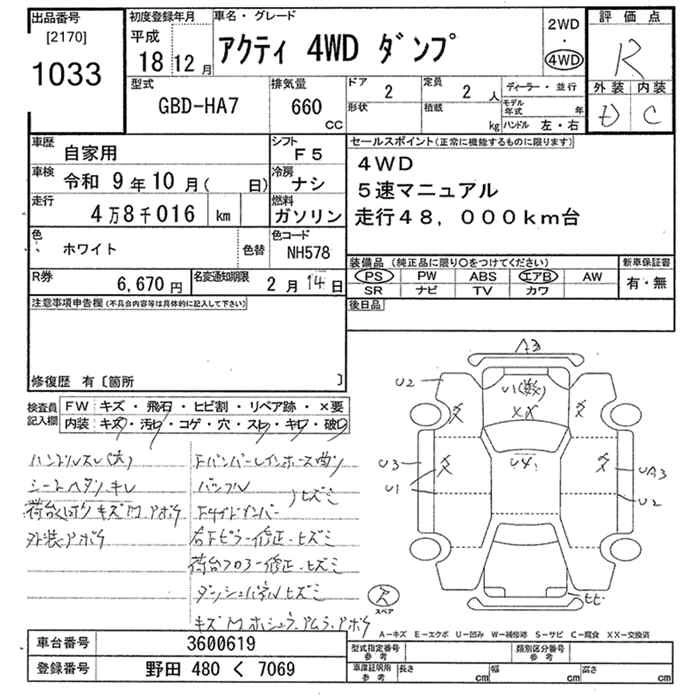 出品番号
[2170]
1033
初度登録年月
平成
18年12月
車名・グレード
アクティ 4WD ダンプ
2WD
・
4WD
評価点
R
外装 内装
D C
型式
GBD-HA7
排気量
660
CC
ドア
2
定員
2 人
形状
積載
kg
ディーラー・並行
モデル年式 年
ハンドル 左・右
車歴
自家用
シフト
F5
車検
令和 9年10月( 日)
冷房
ナシ
走行
4万8千016 km
燃料
ガソリン
色
ホワイト
色替
色コード
NH578
R券
6,670円
名変通知期限
2月14日
セールスポイント(正常に機能するものに限ります)
4WD
5速マニュアル
走行48,000km台
装備品 (純正品に限り○をつけてください)
PS PW ABS エアB AW
SR ナビ TV カワ
新車保証書
有・無
後日品
注意事項申告欄(不具合内容等は具体的に記入して下さい)
修復歴 有〔箇所 〕
検査員記入欄
FW キズ・飛石・ヒビ割・リペア跡・×要
内装 キズ・汚レ・コゲ・穴・スレ・キレ・破レ
ハンドルスレ(大)
シートヘタリ キレ
荷台(内外)キズMアホウ
外装アホウ
Fバンパーレインホース曲リ
バックル
ヒズミ
Fサイドメンバー
右Fピラー修正・ヒズミ
荷台フロアー修正・ヒズミ
ダッシュパネルヒズミ
A3
U2
U1(数)
XX
U3
U4
U1
UA3
U2
スペア
A-キズ E-エクボ U-凹み W-補修跡 S-サビ C-腐食 XX-交換済
車台番号
3600619
登録番号
野田 480 く 7069
型式指定番号
参考
類別区分番号
参考
車庫証明用
参考
長さ cm
幅 cm
高さ cm